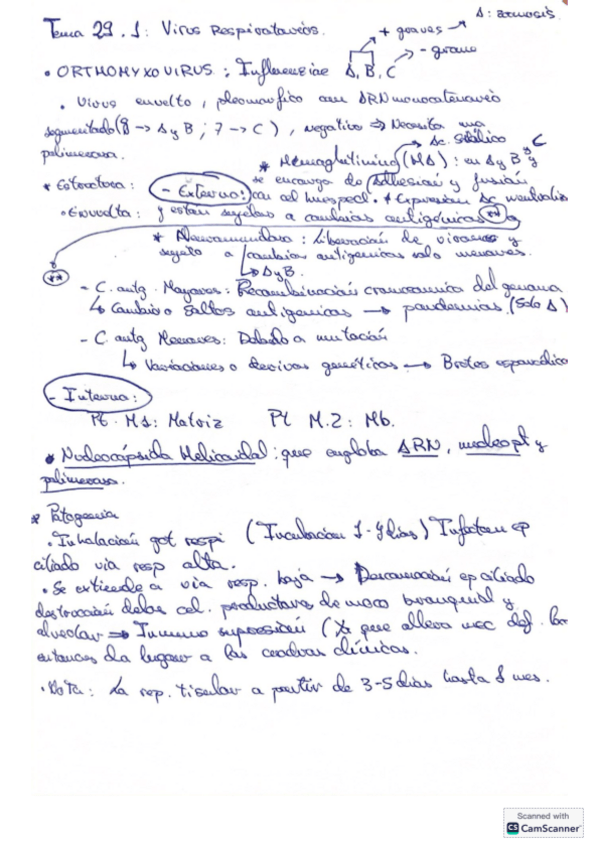 Tema 29.1: Virus Respiratorios.
+ graves → A: zoonosis.
→ - grave
• ORTHOMYXOVIRUS: Influenzae A, B, C
• Virus envuelto, pleomórfico con ARN monocatenario
segmentado (8 → A y B ; 7 → C), negativo ⇒ Necesita una
polimerasa.
Ac. Siálico
* Hemaglutinina (HA): en A y B y C
* Estructura: - Externa: se encarga de Adhesión y fusión
con cel huesped. * Expresión Ac neutraliz
• Envuelta: y están sujetas a cambios antigénicos **
* Neuraminidasa: Liberación de viriones y
sujeto a cambios antigénicos solo menores.
↳ A y B.
**
- C. antg. Mayores: Recombinación cromosómica del genoma
↳ Cambio o Saltos antigénicos → pandemias. (Solo A)
- C antg Menores: Debido a mutación
↳ Variaciones o derivas genéticas → Brotes esporádico
- Interna:
Pt. M1: Matriz Pt M.2: Mb.
• Nucleocápsida Helicoidal: que engloba ARN, nucleopt y
polimerasa.
* Patogenia
• Inhalación got respi (Incubación 1-4 días) Infectan ep
ciliado via resp alta.
• Se extiende a via resp. baja → Descamación ep ciliado
destrucción de las cel. productoras de moco bronquial y
alveolar ⇒ Inmuno supresión (Ya que alteró mec def. Por
entonces da lugar a las clínicas.
• NOTA: La rep. tisular a partir de 3-5 días hasta 1 mes.
Scanned with
CS CamScanner